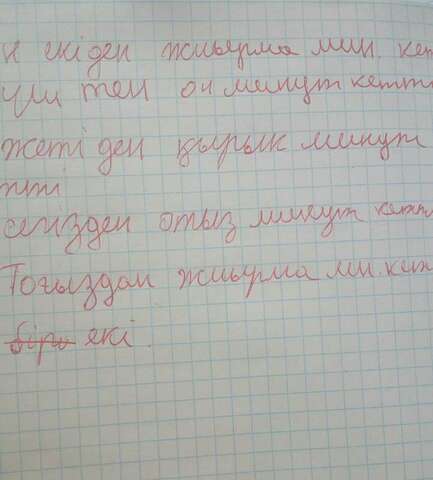 н екіден жиырма мин. кет
үш тен он минут кетт
жеті ден қырық минут
тті
сегізден отыз минут кетт
Тоғыздан жиырма ми. кет
екі.